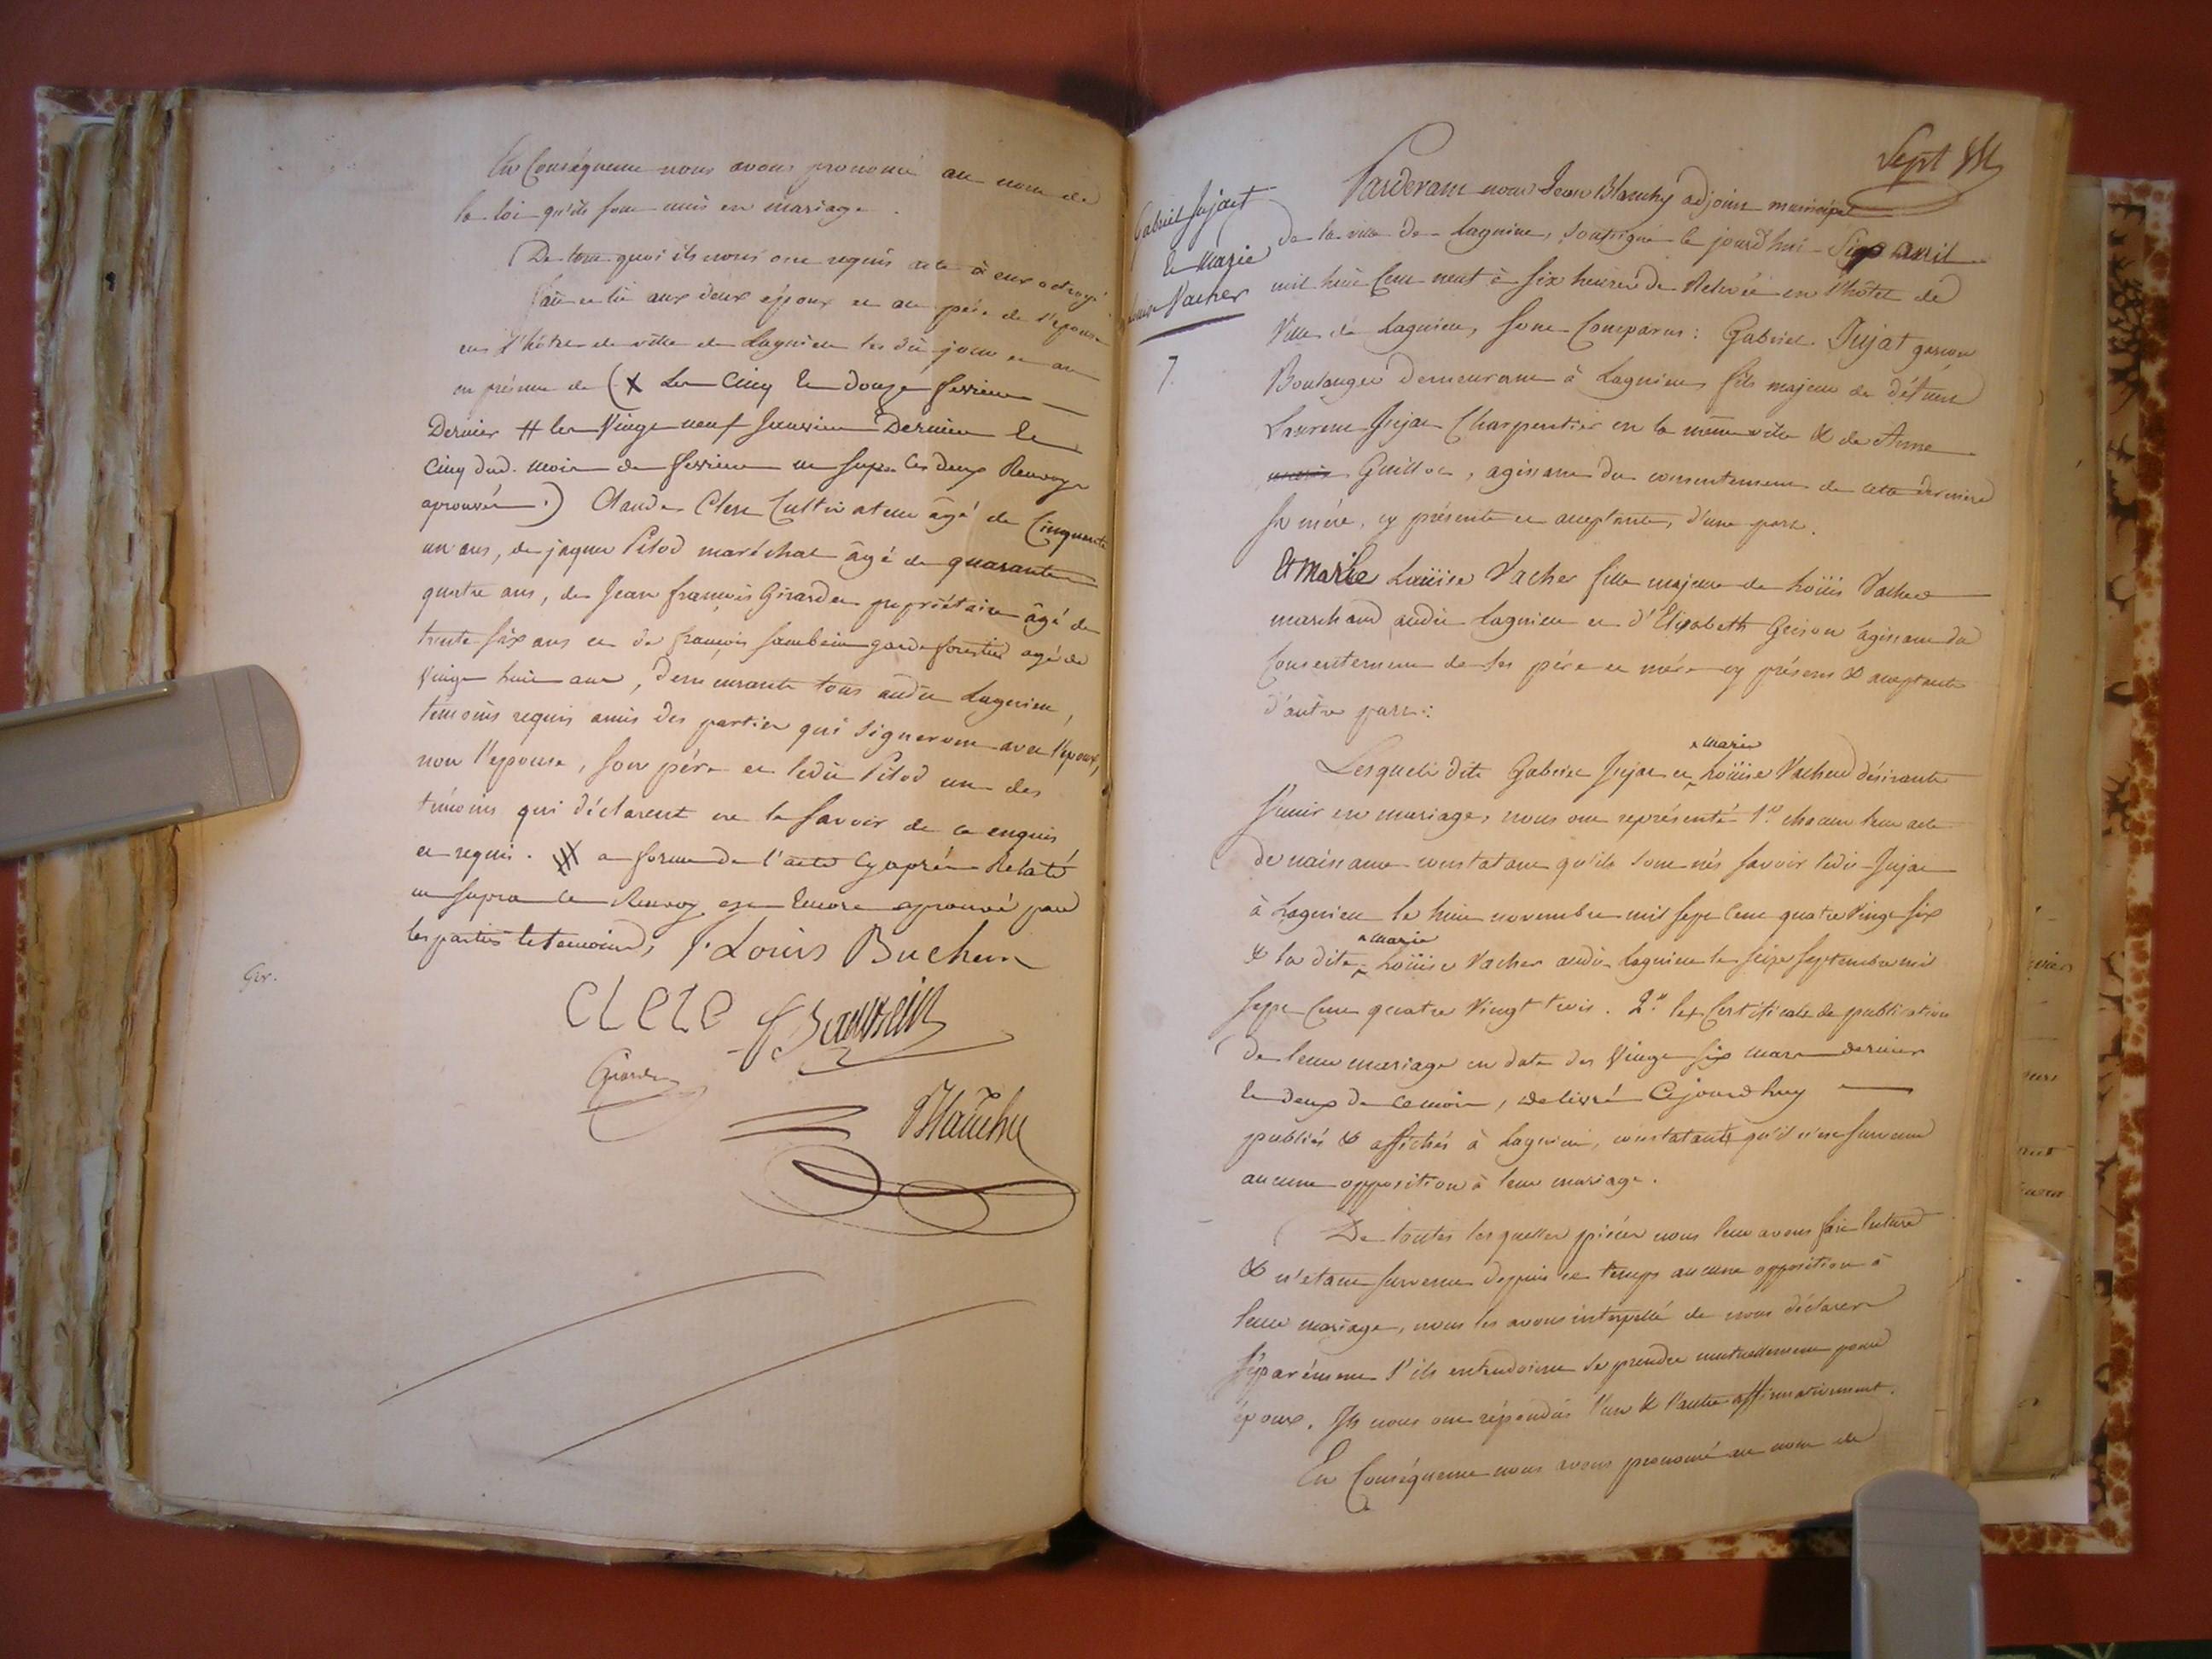 En Conséquence nous avons prononcé au nom de
la loi qu'ils sont unis en mariage.
De tout quoi ils nous ont requis acte à eux octroyé
fait et lû aux deux époux et au père de l'épouse
en l'hôtel de ville de Lagnieu les dit jour et an
en présence de (X Les Cinq et douze fevrier
Dernier # les Vingt neuf Janvier Dernier et
Cinq dud. mois de fevrier ut supra les deux Renvoys
aprouvés.) Claude Clerc Cultivateur âgé de Cinquante
un ans, de jaques Pitod maréchal âgé de quarante
quatre ans, de Jean françois Girardet propriétaire âgé de
trente six ans et de françois garde forestier agé de
Vingt huit ans, demeurants tous audit Lagnieu,
témoins requis amis des parties qui signeront avec l'époux,
non l'epouse, son père et ledit Pitod un des
témoins qui déclarent ne le savoir de ce enquis
et requis. # a forme de l'acte Cy après Relaté
ut supra le Renvoy est Encore aprouvé par
les parties et temoins, Louis Buchet
Gr.
CLERC
Girardet
Blanchy
Sept
Gabriel Jujat
Et Marie
Louise Vacher
7.
Pardevant nous Jean Blanchy adjoint municipal
de la ville de Lagnieu, soussigné le jourd'hui Sept avril
mil huit Cent neuf à six heures de Relevée en l'hôtel de
Ville de Lagnieu, sont Comparus: Gabriel Jujat garcon
Boulanger demeurant à Lagnieu fils majeur de défunt
Laurent Jujat Charpentier en la même ville & de Anne
Guilloc, agissant du consentement de cette derniere
sa mére, cy présente et aceptante, d'une part.
& Marie Louïse Vacher fille majeure de Loüis Vacher
marchand audit Lagnieu et d'Elizabeth Grison agissant du
Consentement de ses pére et mére cy présens & aceptants
d'autre part:
Lesquels dits Gabriel Jujat et marie Loüise Vacher désirants
s'unir en mariage, nous ont représenté 1º. chacun leur acte
de naissance constatant qu'ils sont nés savoir ledit Jujat
à Lagnieu le huit novembre mil sept Cent quatre Vingt six
& la dite marie Loüise Vacher audit Lagnieu le seize septembre mil
sept Cent quatre Vingt trois. 2º. les Certificats de publication
de leur mariage en date des Vingt six mars dernier
et deux de ce mois, delivré Cejourd huy
publiés & affichés à Lagnieu, constatants qu'il n'est survenu
aucune opposition à leur mariage.
De toutes lesquelles piéces nous leur avons fait lecture
& n'etant survenu depuis ce temps aucune opposition à
leur mariage, nous les avons interpellé de nous déclarer
séparément s'ils entendoient se prendre mutuellement pour
époux, Ils nous ont répondu l'un & l'autre affirmativement.
En Conséquence nous avons prononcé au nom de